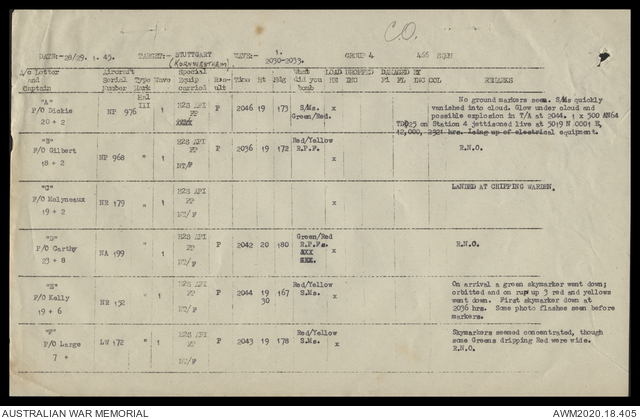 C.O.
DATE:-28/29. 1. 45. TARGET:- STUTTGART WAVE:- 1. GROUP 4 466 SQDN
(KORNWESTHEIM) 2030-2033.
A/c Letter and Captain Aircraft Serial Number Type Mark Wave Special Equip carried Result Time Ht Hdg What did you bomb LOAD DROPPED HH INC DAMAGED BY FI FL INC COL REMARKS
"A" HAL III H2S API No ground markers seen. S/Ms quickly
P/O Dickie NP 976 1 P 2046 19 173 S/Ms. x vanished into cloud. Glow under cloud and
20 + 2 Green/Red. possible explosion in T/A at 2044. 1 x 500 AN64
TD025 on Station 4 jettisoned live at 5019 N 0001 E,
12,000, 2321 hrs. Icing up of electrical equipment.
"B" H2S API Red/Yellow
P/O Gilbert NP 968 " 1 P 2036 19 172 R.P.F. x R.N.O.
18 + 2 NT/F
"C" H2S API LANDED AT CHIPPING WARDEN.
P/O Molyneaux NR 179 " 1 x
19 + 2 NT/F
"D" H2S API Green/Red
P/O Carthy NA 199 " 1 P 2042 20 180 R.P.Fs. x R.N.O.
23 + 8 NT/F
"E" H2S API Red/Yellow On arrival a green skymarker went down;
P/O Kelly NR 132 " 1 P 2044 19 167 S.Ms. x orbited and on run up 3 red and yellows
19 + 6 NT/F 30 went down. First skymarker down at
2036 hrs. Some photo flashes seen before
markers.
"F" H2S API Red/Yellow Skymarkers seemed concentrated, though
P/O Large LW 172 " 1 P 2043 19 178 S.Ms. x some Greens dripping Red were wide.
7 + NT/F R.N.O.
AUSTRALIAN WAR MEMORIAL AWM2020.18.405